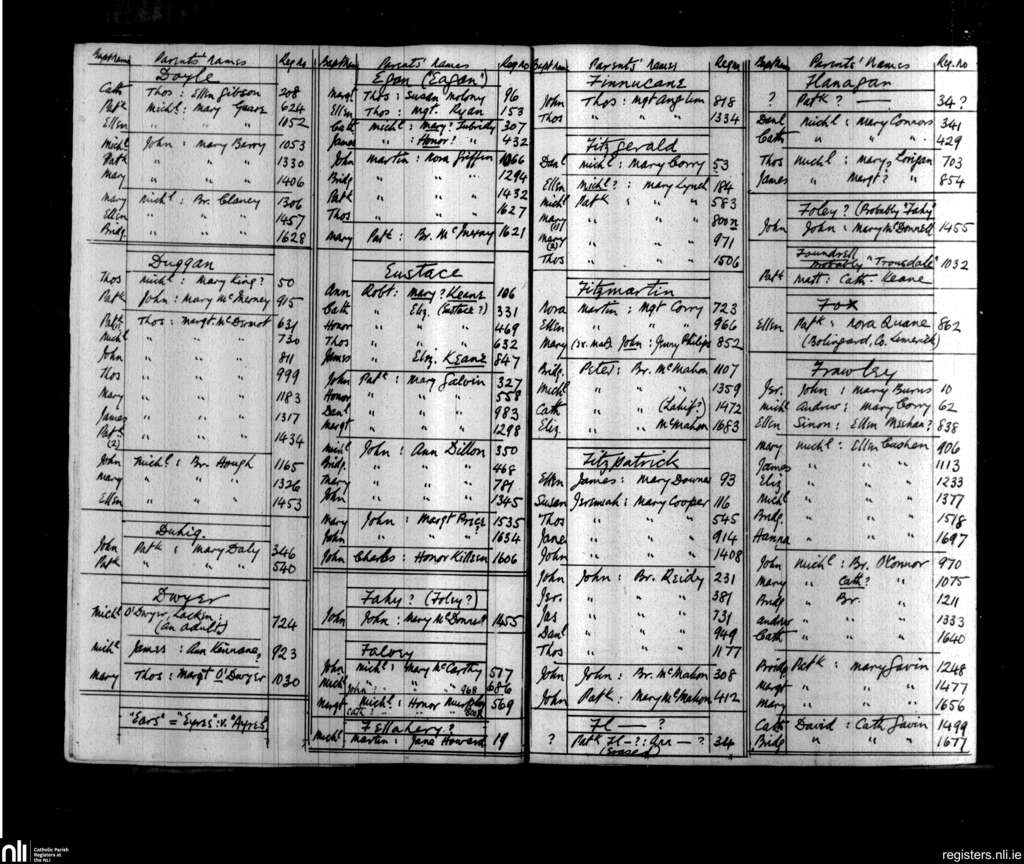 Bapt name Parents' names Reg no
Doyle
Cath Thos : Ellen Gibson 208
Patk Michl : Mary Geary 624
Ellen " " " 1052
Michl John : Mary Barry 1053
Patk " " " 1330
Mary " " " 1406
Mary Michl : Br. Clancy 1306
Ellen " " " 1457
Bridg. " " " 1628
Duggan
Thos Michl : Mary King? 50
Patk John : Mary McMerney 915
Patk Thos : Margt. McDermot 631
Michl " " " 730
John " " " 811
Thos " " " 999
Mary " " " 1183
James " " " 1317
Patk (2) " " " 1434
John Michl : Br. Hough 1165
Mary " " " 1326
Ellen " " " 1453
Duhig.
John Patk : Mary Daly 346
Patk " " " 540
Dwyer
Michl O'Dwyer, Lackin, (an adult) 724
Michl James : Ann Kinnane? 923
Mary Thos : Margt O'Dwyer 1030
"Ears" = "Eyres" : v. "Ayres"
Bapt Name Parents' names Reg no
Egan ("Eagan")
Margt Thos : Susan Molony 96
Ellen Thos : Mgt. Ryan 153
Cath Michl : Mary? Tubridy 307
James " : Honor? " 432
John Martin : Nora Griffin 1066
Bridg " " " 1294
Patk " " " 1432
Thos " " " 1627
Mary Patk : Br. McInray 1621
Eustace
Ann Robt : Mary? Keane 106
Cath " Eliz. (Eustace?) 331
Honor " " " 469
Thos " " " 632
James " Eliz. Keane 847
John Patk : Mary Galvin 327
Honor " " " 558
Danl " " " 983
Margt " " " 1298
Michl John : Ann Dillon 350
Bridg. " " " 468
Mary " " " 781
John " " " 1345
Mary John : Margt Price 1535
John " " " ? 1654
John Charles : Honor Killeen 1606
Fahy? (Foley?)
John John : Mary McDonnell 1455
Falvey
John Michl : Mary McCarthy 577
Michl " " " 686
John " " 968
Margt Michl : Honor Murphy 569
Cath " " "
Fellahery?
Michl Martin : Jane Howard 19
Bapt name Parents' names Reg no
Finnucane
John Thos : Mgt Anglim 818
Thos " " " 1334
Fitzgerald
Danl Michl : Mary Corry 53
Ellen Michl? : Mary Lynch 184
Michl Patk " " " 583
Mary (1) " " " 800
Mary (2) " " " 971
Thos " " " 1506
Fitzmartin
Nora Martin : Mgt Corry 723
Ellen " " " 966
Mary John : Philips 852
Bridg. Peter : Br. McMahon 1107
Michl " " " 1359
Cath " " (Lahif?) 1472
Eliz. " " McMahon 1683
Fitzpatrick
Ellen James : Mary Downes 93
Susan Jeremiah : Mary Cooper 116
Thos " " " 545
Jane " " " 914
John " " " 1408
John John : Br. Reidy 231
Jer. " " " 381
Jas " " " 731
Danl " " " 949
Thos " " " 1177
John John : Br. McMahon 308
John Patk : Mary McMahon 412
Fl — ?
? Patk Fl—? : Ann — ? 34
(Erased)
Bapt name Parents' Names Reg. no
Flanagan
? Patk ? — 34?
Danl Michl : Mary Connors 341
Cath " " " 429
Thos Michl : Mary? Lorigan 703
James " Margt? " 854
Foley? (Probably "Fahy")
John John : Mary McDonnell 1455
Foundrell
Probably "Trousdale" 1032
Patk Matt : Cath. Keane
Fox
Ellen Patk : Nora Quane 862
(Bolingard, Co. Limerick)
Frawley
Jer. John : Mary Burns 10
Michl Andrew : Mary Corry 62
Ellen Simon : Ellen Meehan? 838
Mary Michl : Ellen Cushen 906
James " " " 1113
Eliz " " " 1233
Michl " " " 1377
Bridg. " " " 1518
Hanna " " " 1697
John Michl : Br. O'Connor 970
Mary " Cath? " 1075
Bridg " Br. " 1211
Andrew " " " 1333
Cath " " " 1640
Bridg Patk : Mary Gavin 1248
Margt " " " 1477
Mary " " " 1656
Cath David : Cath Gavin 1499
Bridg " " " 1677
nli Catholic Parish
Registers at
the NLI
registers.nli.ie